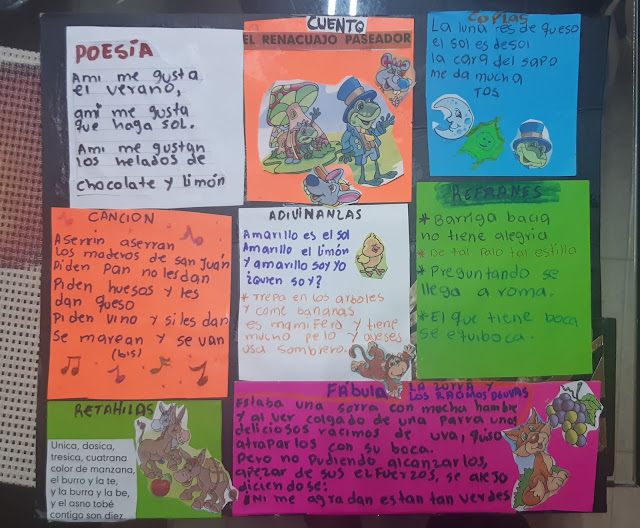 POESÍA
Ami me gusta
el verano,
ami me gusta
que haga sol.
Ami me gustan
los helados de
chocolate y limón
CUENTO
EL RENACUAJO PASEADOR
COPLAS
La luna es de queso
el sol es de sol
la cara del sapo
me da mucha
Tos
CANCION
Aserrin aserran
los maderos de san Juán
Piden pan no les dan
Piden huesos y les
dan queso
Piden vino y si les dan
se marean y se van
(bis)
ADIVINANZAS
Amarillo es el sol
Amarillo el limón
y amarillo soy yo
¿Quien soy?
* Trepa en los arboles
y come bananas
es mamifero y tiene
mucho pelo y aveses
usa sombrero.
REFRANES
* Barriga bacia
no tiene alegria
* De tal Palo tal estilla
* Preguntando se
llega a roma.
* El que tiene boca
se equiboca.
RETAHILAS
Unica, dosica,
tresica, cuatrana
color de manzana,
el burro y la te,
y la burra y la be,
y el asno tobé
contigo son diez
FABULA LA ZORRA Y
LOS RACIMOS DE UVAS
Estaba una sorra con mucha hambre
y al ver colgado de una parra unos
deliciosos racimos de uva, quiso
atraparlos con su boca.
Pero no pudiendo alcanzarlos,
apezar de sus elfuerzos, se alejo
diciendose:
¡Ni me agradan estan tan verdes